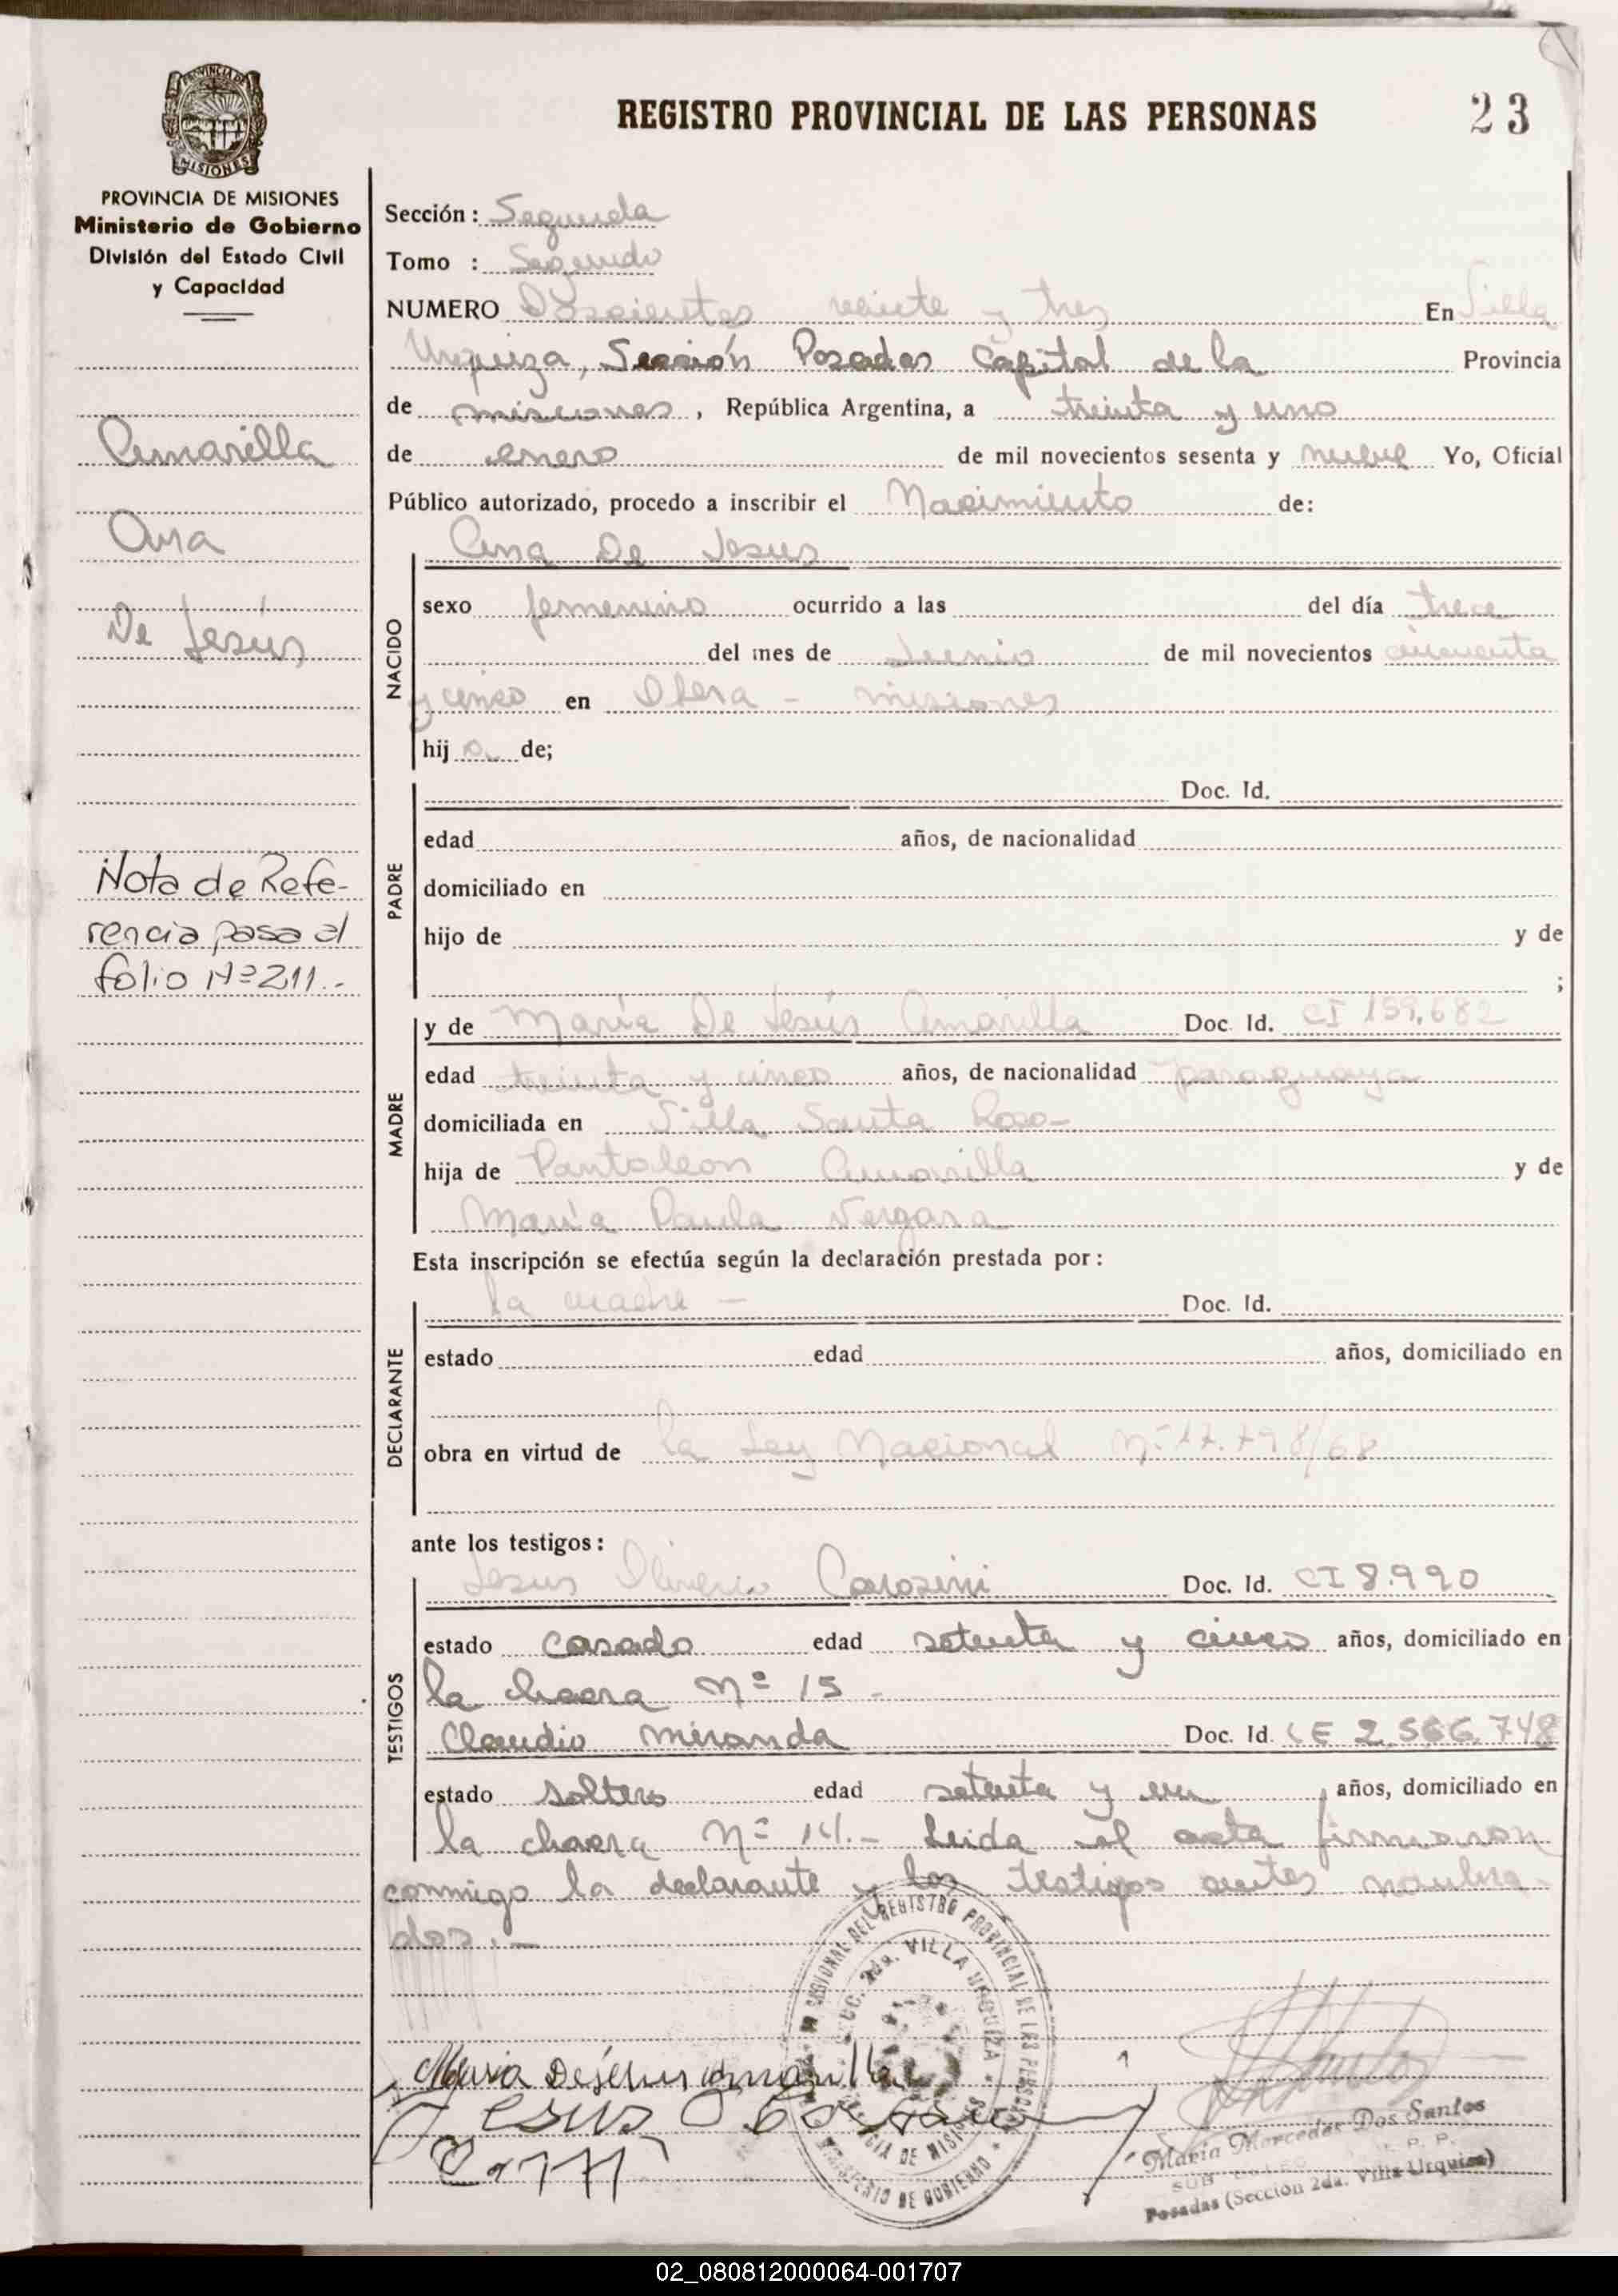 REGISTRO PROVINCIAL DE LAS PERSONAS
23
PROVINCIA DE MISIONES
MISIONES
PROVINCIA DE MISIONES
Ministerio de Gobierno
División del Estado Civil
y Capacidad
Amarilla
Ana
De Jesús
Nota de Refe-
rencia pasa al
folio Nº 211.-
Sección: Segunda
Tomo : Segundo
NUMERO Doscientos veinte y tres En Villa
Urquiza, Sección Posadas Capital de la Provincia
de misiones, República Argentina, a treinta y uno
de enero de mil novecientos sesenta y nueve Yo, Oficial
Público autorizado, procedo a inscribir el Nacimiento de:
Ana De Jesus
NACIDO
sexo femenino ocurrido a las del día trece
del mes de Junio de mil novecientos cincuenta
y cinco en Obera - misiones
hija de;
PADRE
Doc. Id.
edad años, de nacionalidad
domiciliado en
hijo de y de
;
MADRE
y de María De Jesús Amarilla Doc. Id. CI 159.682
edad treinta y cinco años, de nacionalidad paraguaya
domiciliada en Villa Santa Rosa-
hija de Pantaleon Amarilla y de
María Paula Vergara
Esta inscripción se efectúa según la declaración prestada por:
DECLARANTE
la madre - Doc. Id.
estado edad años, domiciliado en
obra en virtud de la Ley Nacional Nº 17.798/68
ante los testigos:
TESTIGOS
Jesus Carosini Doc. Id. CI 8.990
estado casado edad setenta y cinco años, domiciliado en
la chacra Nº 15 -
Claudio Miranda Doc. Id. LE 2.566.748
estado soltero edad setenta y un, años, domiciliado en
la chacra Nº 14.- Leida el acta firmaron
conmigo la declarante y los testigos antes nombra-
dos.-
REGIONAL DEL REGISTRO PROVINCIAL DE LAS PERSONAS
SECC. 2da. VILLA URQUIZA
PROVINCIA DE MISIONES
MINISTERIO DE GOBIERNO
Maria Dejesus amarilla
Jesus
María Mercedes Dos Santos
SUB R. P. P.
Posadas (Sección 2da. Villa Urquiza)
02_080812000064-001707